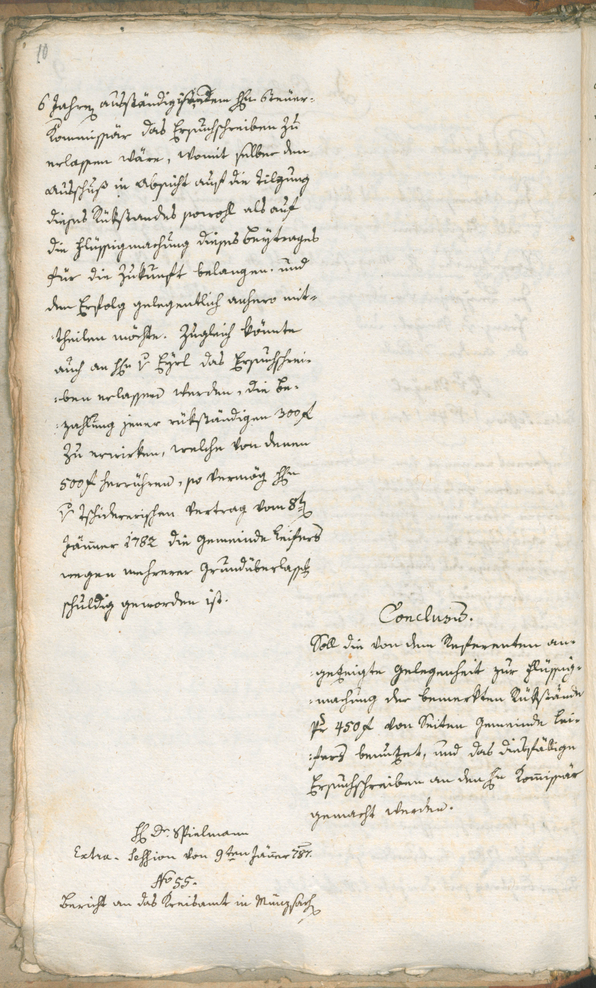 10
6 Jahren ausständig ist, dem Hn Steuer-
Kommissär das Ersuchschreiben zu
erlassen wäre, womit selber den
Ausschuß in Absicht auf die Tilgung
dieses Rükstandes sowohl als auf
die Flüssigmachung dieses Beytrages
für die Zukunft belangen, und
den Erfolg gelegentlich anhero mit-
theilen möchte. Zugleich könnte
auch an Hn v Eyrl das Ersuchschrei-
ben erlassen werden, die Be-
zahlung jener rükständigen 300 f
zu erwirken, welche von denen
500 f herrühren, so vermög Hn
v Tschidererischen Vertrag vom 8t
Jänner 1782 die Gemeinde Leifers
wegen mehrerer Grundüberlass
schuldig geworden ist.
Conclusum.
Soll die von dem Referenten an-
gezeigte Gelegenheit zur Flüssig-
machung der bemerkten Rükstände
pr 450 f von Seiten Gemeinde Lei-
fers benutzet, und das diesfällige
Ersuchschreiben an den Hn Kommissär
gemacht werden.
H Dr. Spielmann
Extra-Session von 9ten Jäner 787.
No 55.
Bericht an das Kreisamt in Münzsach